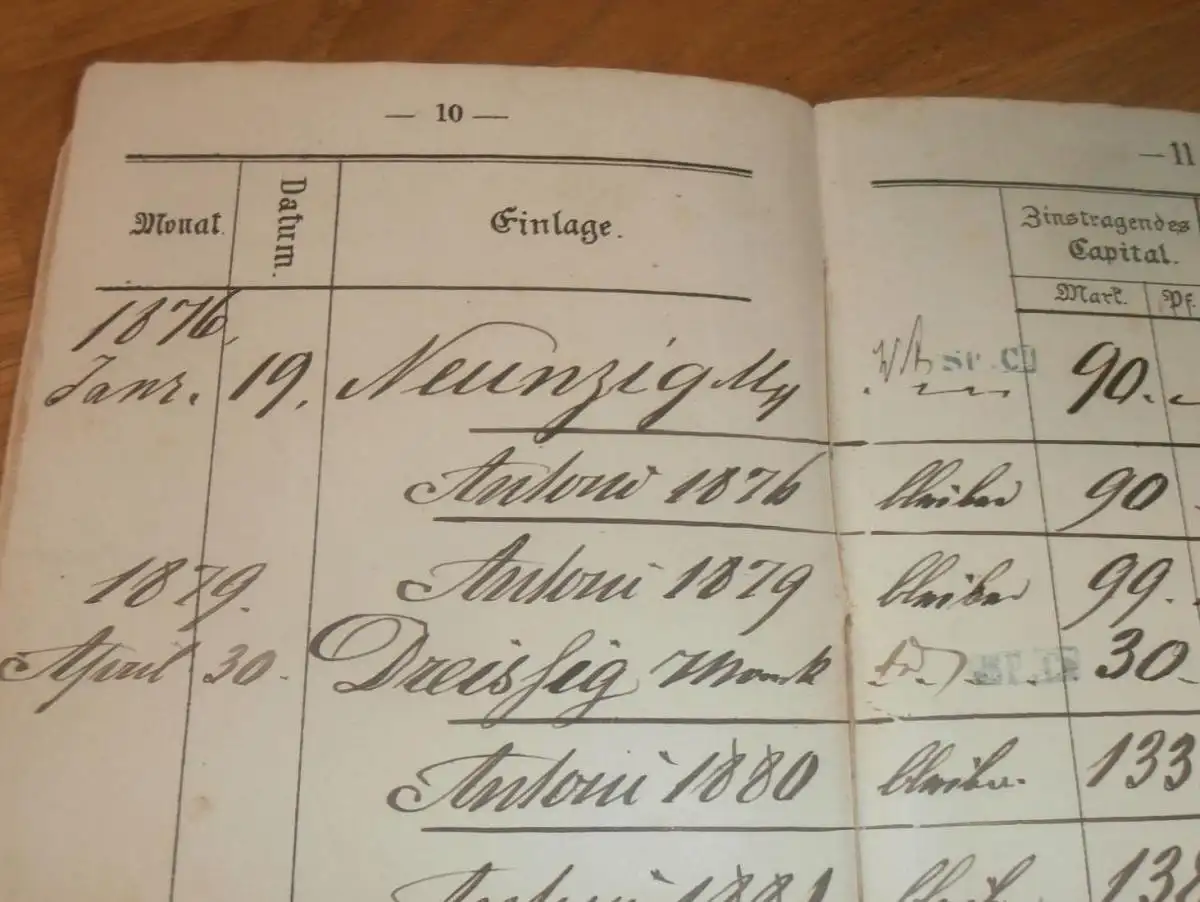 — 10 —
— 11
Monat.
Datum.
Einlage.
Zinstragendes
Capital.
Mark.
Pf.
1876.
Janr. 19. Neunzig Mk St. C. 90.
Antoni 1876 bleiben 90
1879. Antoni 1879 bleiben 99.
April 30. Dreissig Mark 30.
Antoni 1880 bleiben 133
Antoni 1881 138